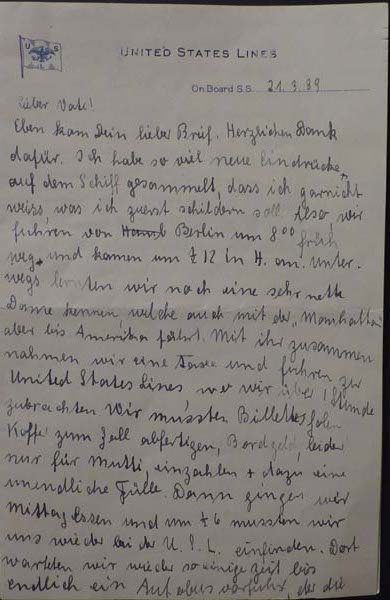 U S
UNITED STATES LINES
On Board S.S. 21.3.39
Lieber Vati!
Eben kam Dein lieber Brief. Herzlichen Dank
dafür. Ich habe so viel neue Eindrücke
auf dem Schiff gesammelt, dass ich garnicht
weiss, was ich zuerst schildern soll. Also wir
fuhren von Berlin um 8 00 früh
weg und kamen um ½ 12 in H. an. Unter-
wegs lernten wir noch eine sehr nette
Dame kennen, welche auch mit der „Manhattan"
aber bis Amerika fährt. Mit ihr zusammen
nahmen wir eine und fuhren zur
United States Lines wo wir über 1 Stunde
zubrachten Wir mussten Billettes holen
Koffer zum Zoll abfertigen, Bordgeld, leider
nur für Mutti, einzahlen + dazu eine
unendliche Fülle. Dann gingen wir
Mittag Essen und um ½ 6 mussten wir
uns wieder bei der U.S.L. einfinden. Dort
warteten wir wieder so einige Zeit bis
endlich ein Autobus vorfuhr, der die